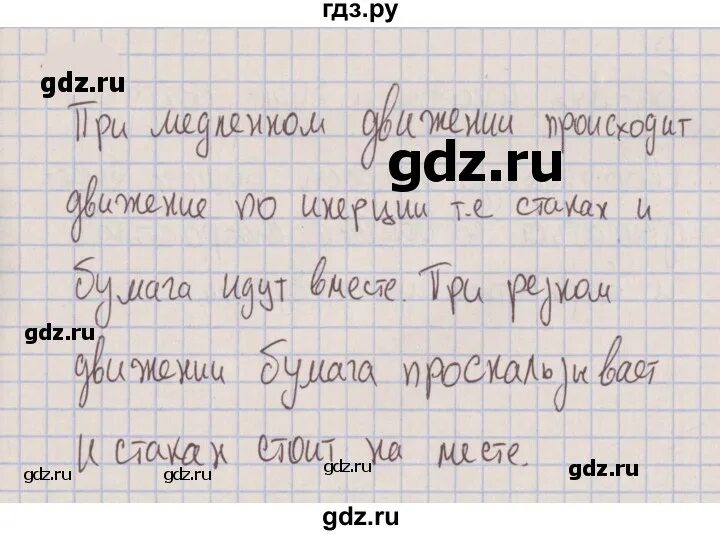 гдз.ру
gdz.ru
При медленном движении происходит
gdz.ru
движение по инерции т.е стакан и
бумага идут вместе. При резком
gdz.ru
движении бумага проскальзывает
и стакан стоит на месте.
gdz.ru gdz.ru gdz.ru gdz.ru
gdz.ru